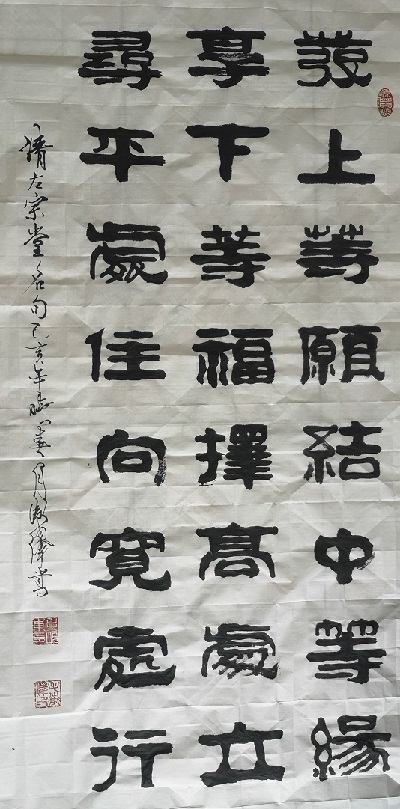 發上等願結中等緣
享下等福擇高處立
尋平處住向寬處行
清左宗堂名句己亥年